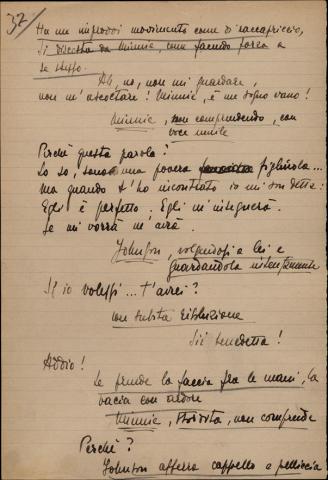 32/
Ha un improvviso movimento come di raccapriccio,
si discosta da Minnie, come facendo forza a
se stesso.
Ah, no, non mi guardare,
non m'ascoltare! Minnie, è un sogno vano!
Minnie, non comprendendo, con
voce umile
Perchè questa parola?
Lo so, sono una povera figliuola...
ma quando t'ho incontrato io mi son detta:
Egli è perfetto. Egli m'insegnerà.
Se mi vorrà m'avrà.
Johnson, volgendosi a lei e
guardandola intensamente
S'io volessi... t'avrei?
con subita risoluzione
Sii benedetta!
Addio!
Le prende la faccia fra le mani, la
bacia con ardore
Minnie, stordita, non comprende
Perchè?
Johnson afferra cappello e pelliccia